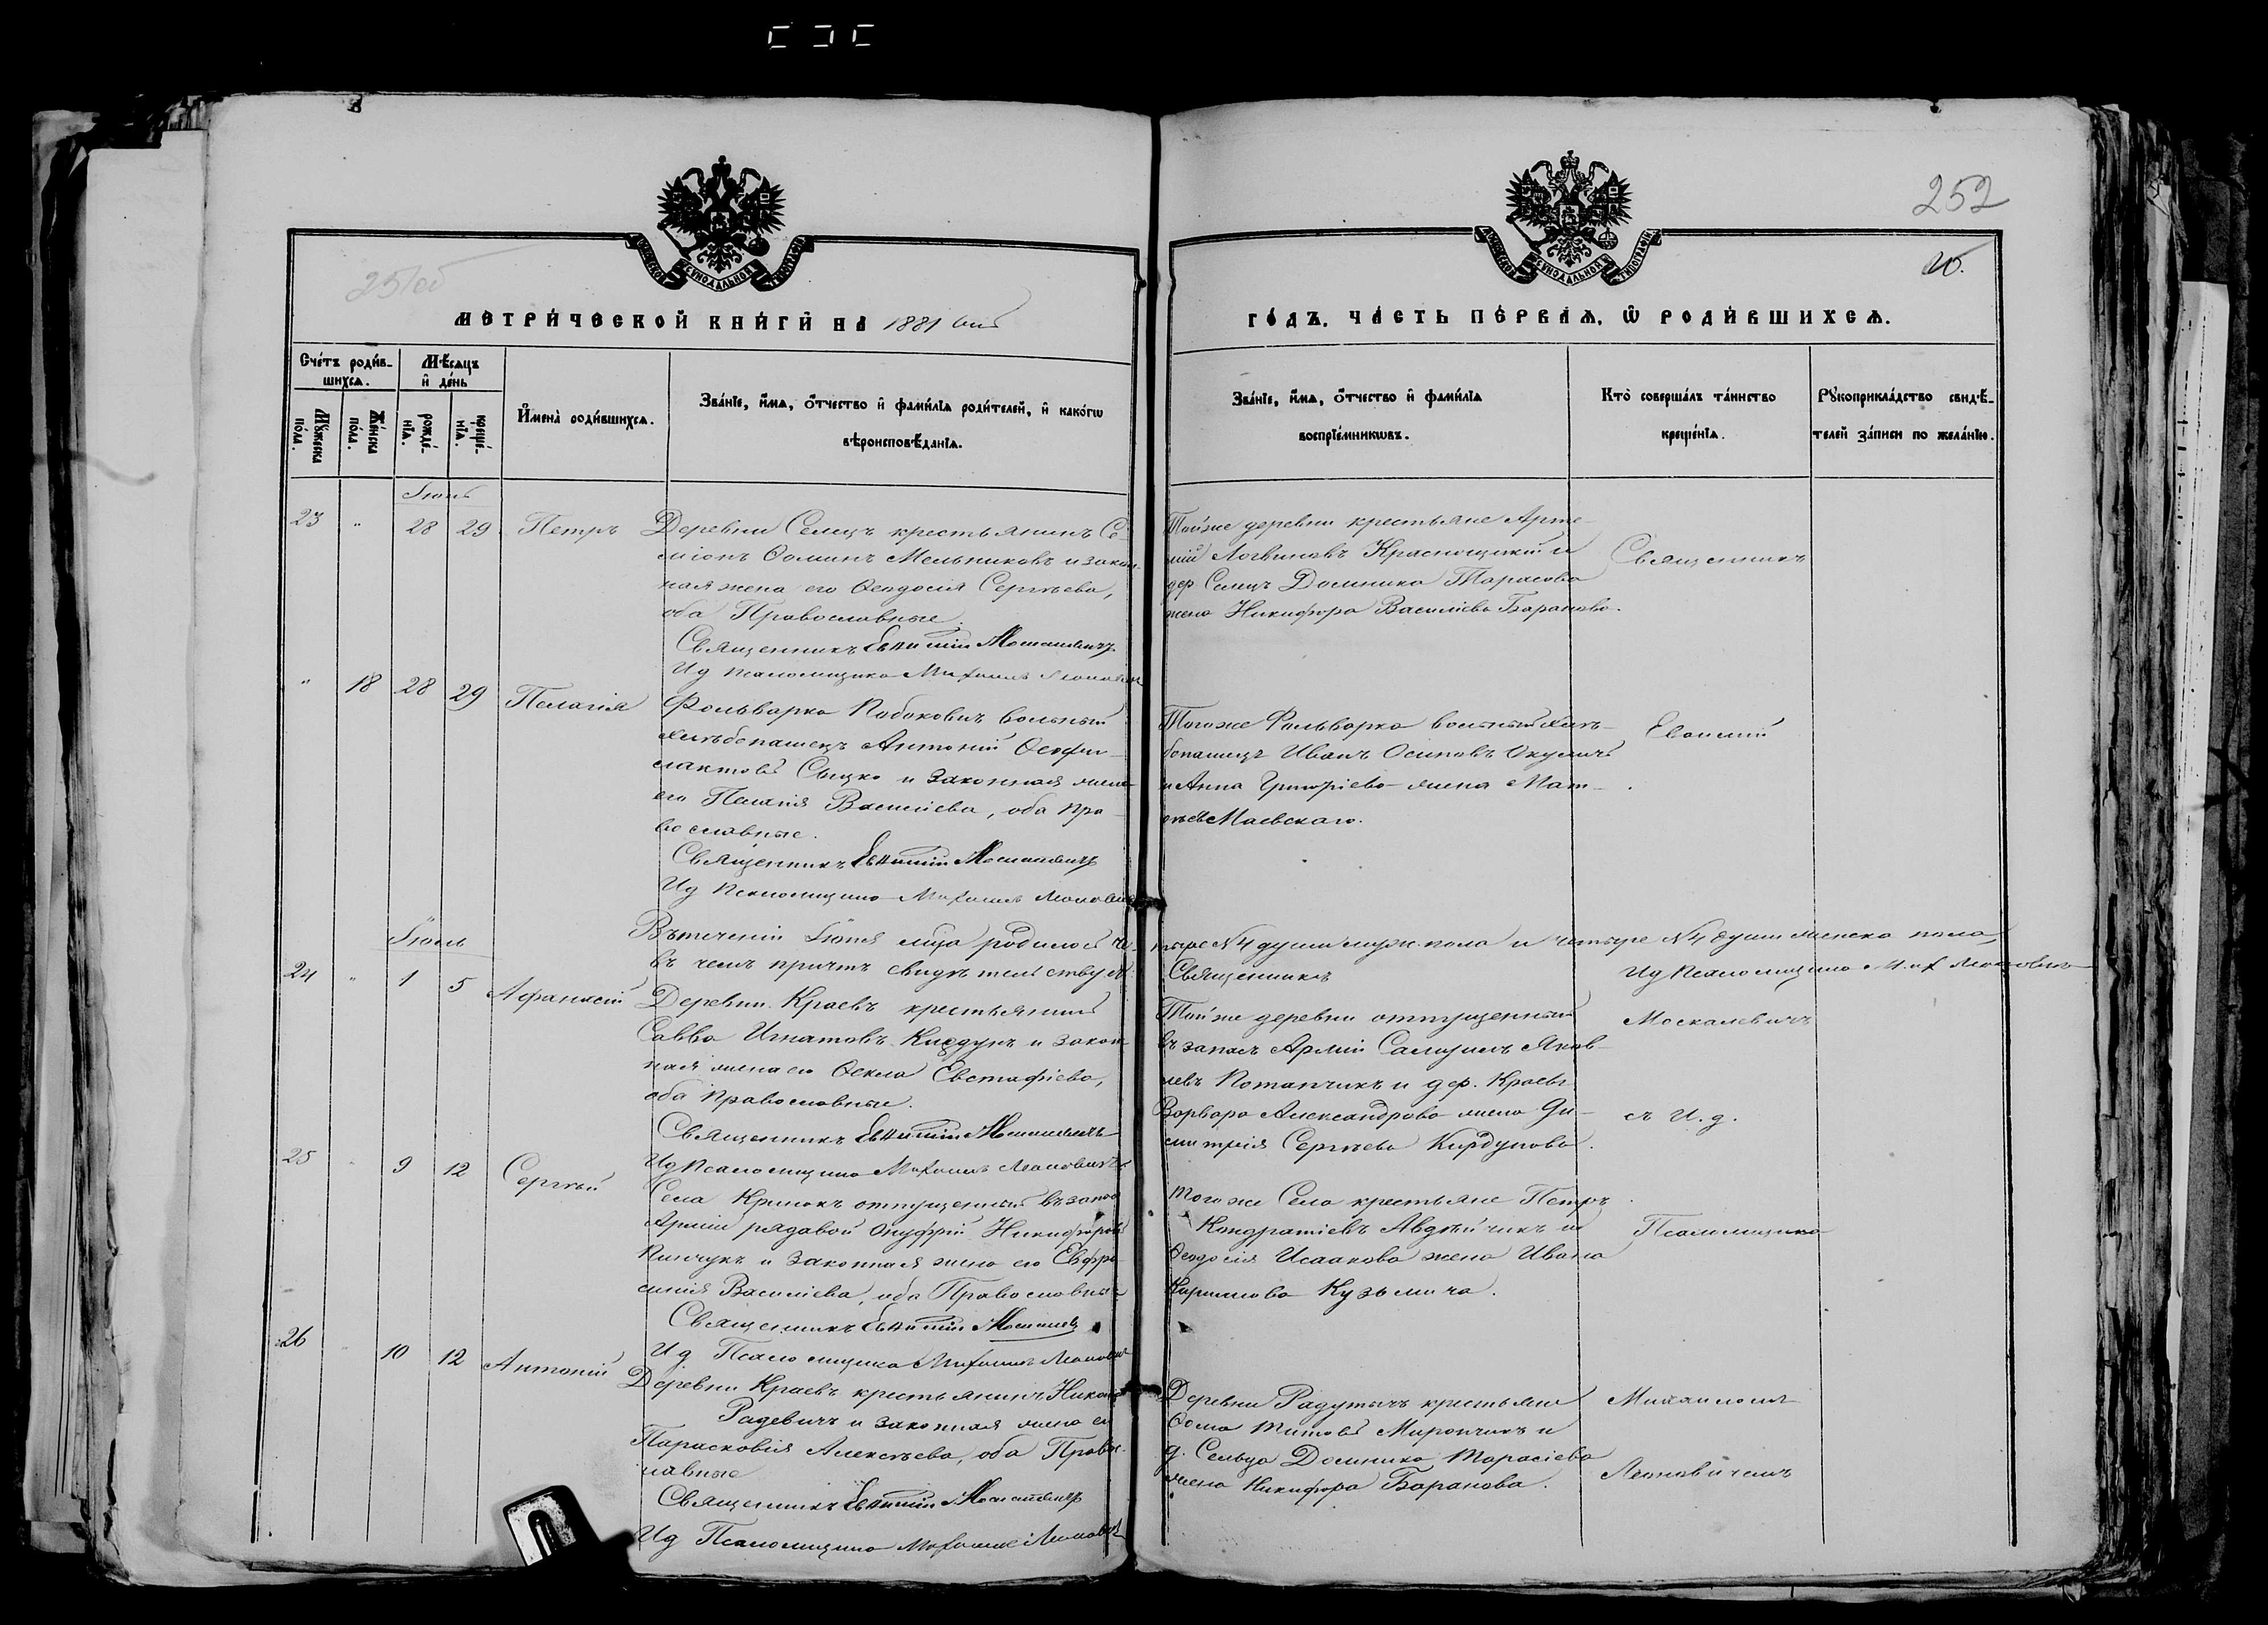 252
251об
20.
МЕТРИЧЕСКОЙ КНИГИ НА 1881 ый
ГОДЪ, ЧАСТЬ ПЕРВАЯ, Ѡ РОДИВШИХСЯ.
Счетъ родив-
шихся.
Мужеска
пола.
Женска
пола.
Мѣсяцъ
и день
рожде-
нія.
креще-
нія.
Имена родившихся.
Званіе, имя, отчество и фамилія родителей, и какогѡ
вѣроисповѣданія.
Званіе, имя, отчество и фамилія
воспріемникѡвъ.
Кто совершалъ таинство
крещенія.
Рукоприкладство свидѣ-
телей записи по желанію.
Іюнь
23 " 28 29 Петръ
Деревни Селецъ крестьянинъ Се-
міонъ Ѳоминъ Мельниковъ и закон-
ная жена его Ѳеодосія Сергѣева,
оба Православные.
Священникъ Евѳимій Москалевичъ
Ид Псаломщика Михаилъ Леонович
Той же деревни крестьяне Арте-
мій Логвиновъ и
дер Селецъ Домника Тарасова
жена Никифора Васильева Баранова.
Священникъ
" 18 28 29 Пелагія
Фольварка вольный
хлѣбопашецъ Антоній Ѳеофи-
лактовъ Свицко и законная жена
его Пелагія Василіева, оба Пра-
вославные.
Священникъ Евѳимій Москалевичъ
Ид Псаломщика Михаилъ Леонович
Того же Фольварка вольный хлѣ-
бопашецъ Иванъ Осиповъ Окуличъ
и Анна Григоріева жена Мат-
ѳѣя Маевскаго.
Евѳимій
Въ теченіи Іюня мца родилось че-
тыре №4 души муж. пола и четыре №4 души женска пола,
въ чемъ причтъ свидѣтельствуетъ
Священникъ
Ид Псаломщика Мих Леонович
Іюль
24 " 1 5 Афанасій
Деревни Краевъ крестьянинъ
Савва Игнатовъ Кирдунъ и закон-
ная жена его Ѳекла Евстафіева,
оба Православные.
Священникъ Евѳимій Москалевичъ
Ид Псаломщика Михаилъ Леоновичъ
Той же деревни отпущенный
въ запасъ Арміи Самуилъ Яков-
левъ Потапчикъ и дер. Краевъ
Варвара Александрова жена Ди-
митрія Сергѣева Кирдунова.
Москалевичъ
съ И. д.
25 9 12 Сергѣй
Села Кринокъ отпущенный въ запас
Арміи рядовой Онуфрій Никифоровъ
Пинчукъ и законная жена его Евфро-
синія Василіева, оба Православные
Священникъ Евѳимій Москалев
Ид Псаломщика Михаилъ Леонович
Того же Села крестьяне Петръ
Кондратіевъ Авдѣйчикъ и
Ѳеодосія Исаакова жена Ивана
Кузьмича.
Псаломщика
26 10 12 Антоній
Деревни Краевъ крестьянинъ
Радевичъ и законная жена его
Парасковія Алексѣева, оба Правос-
лавные
Священникъ Евѳимій Москалевичъ
Ид Псаломщика Михаилъ Леонович
Деревни Радутичъ крестьяне
Ѳома Титовъ Мирончикъ и
д. Сельца Домника Тарасіева
жена Никифора Баранова.
Михаиломъ
Леоновичемъ